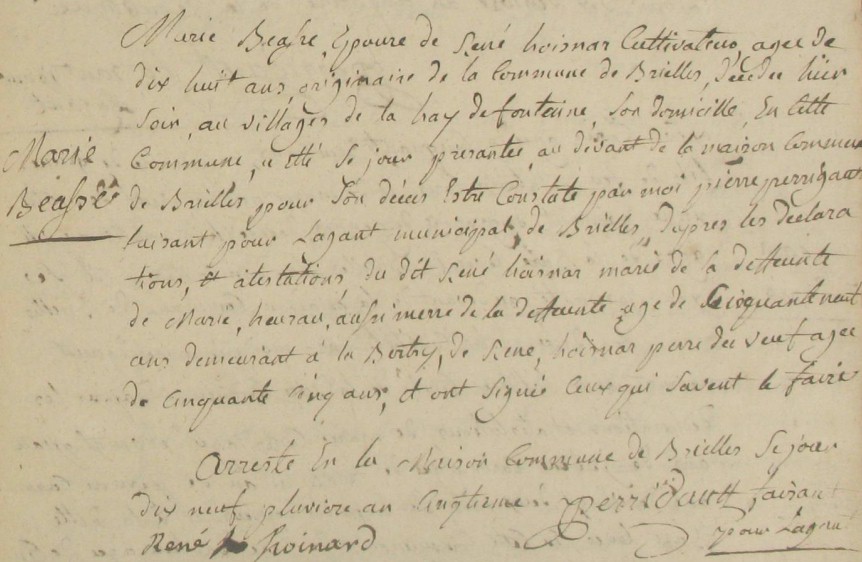 Marie Beasse, Epouse de René hoisnar Cultivateur, agee de
dix huit ans, originaire de la Commune de Brielles, décedee hier
soir, au villages de la hay de fontenne, son domicille, En Cette
Commune, a etté se jour presantee, au devant de la maison Commune
de Brielles pour son déces Estre Constate par moi pierre perrigault
faisant pour Lagant municipal, de Brielles, dapres les declara
tions, et atestations, du dit René hoisnar marie de la deffeunte
de Marie, heurau, aussi merre de la deffeunte age de Cinquante neuf
ans demeurant a la Bertry, de Rene, hoisnar perre du veuf agee
de Cinquante Cinq ans, et ont signée Ceux qui savent le faire
Marie
Beassé
Arreste En la Maison Commune de Brielles Se jour
dix neuf pluviore an Cinqtieme perrigault faisant
René hoinard pour Lagant